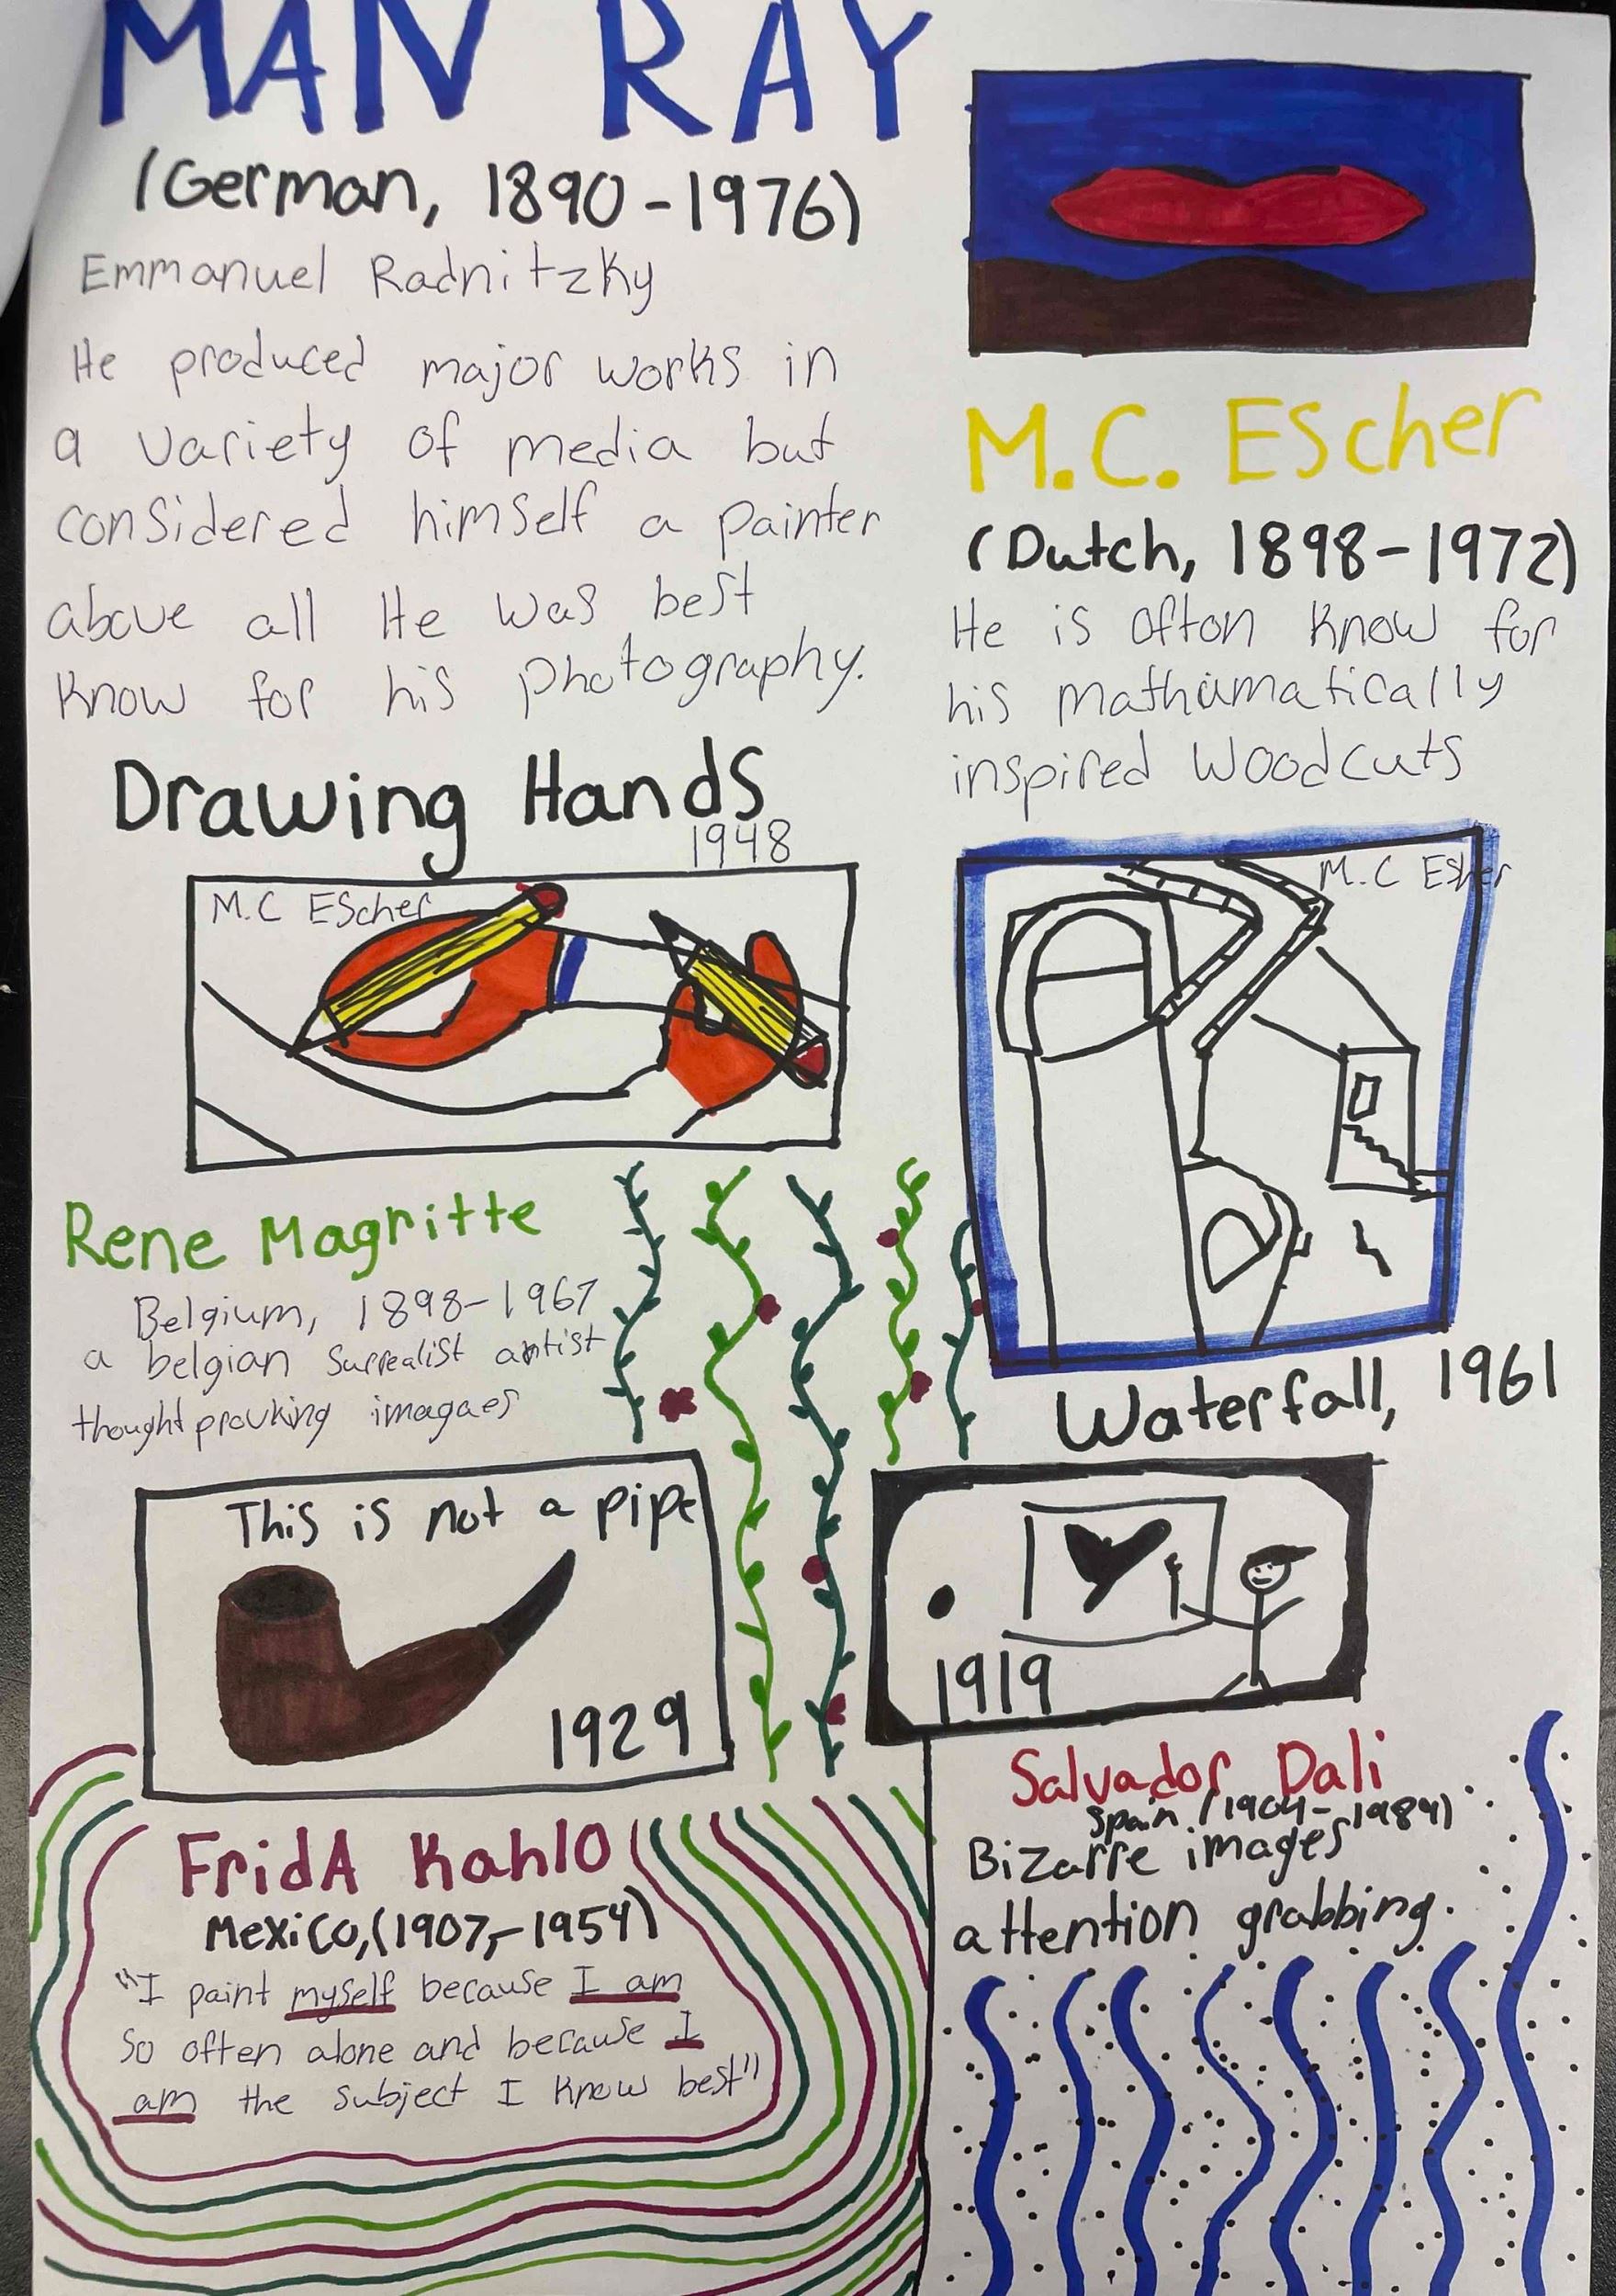 MAN RAY
(German, 1890-1976)
Emmanuel Radnitzky
He produced major works in
a variety of media but
considered himself a painter
above all He was best
know for his photography.
M.C. Escher
(Dutch, 1898-1972)
He is ofton know for
his mathamatically
inspired woodcuts
Drawing Hands
1948
M.C Escher
M.C Esher
Waterfall, 1961
Rene Magritte
Belgium, 1898-1967
a belgian surrealist artist
thought provking imagaes
This is not a pipe
1929
1919
Salvador Dali
Spain (1904-1989)
Bizarre images
attention grabbing.
FridA Kahlo
Mexico,(1907,-1954)
"I paint myself because I am
so often alone and because I
am the subject I know best"